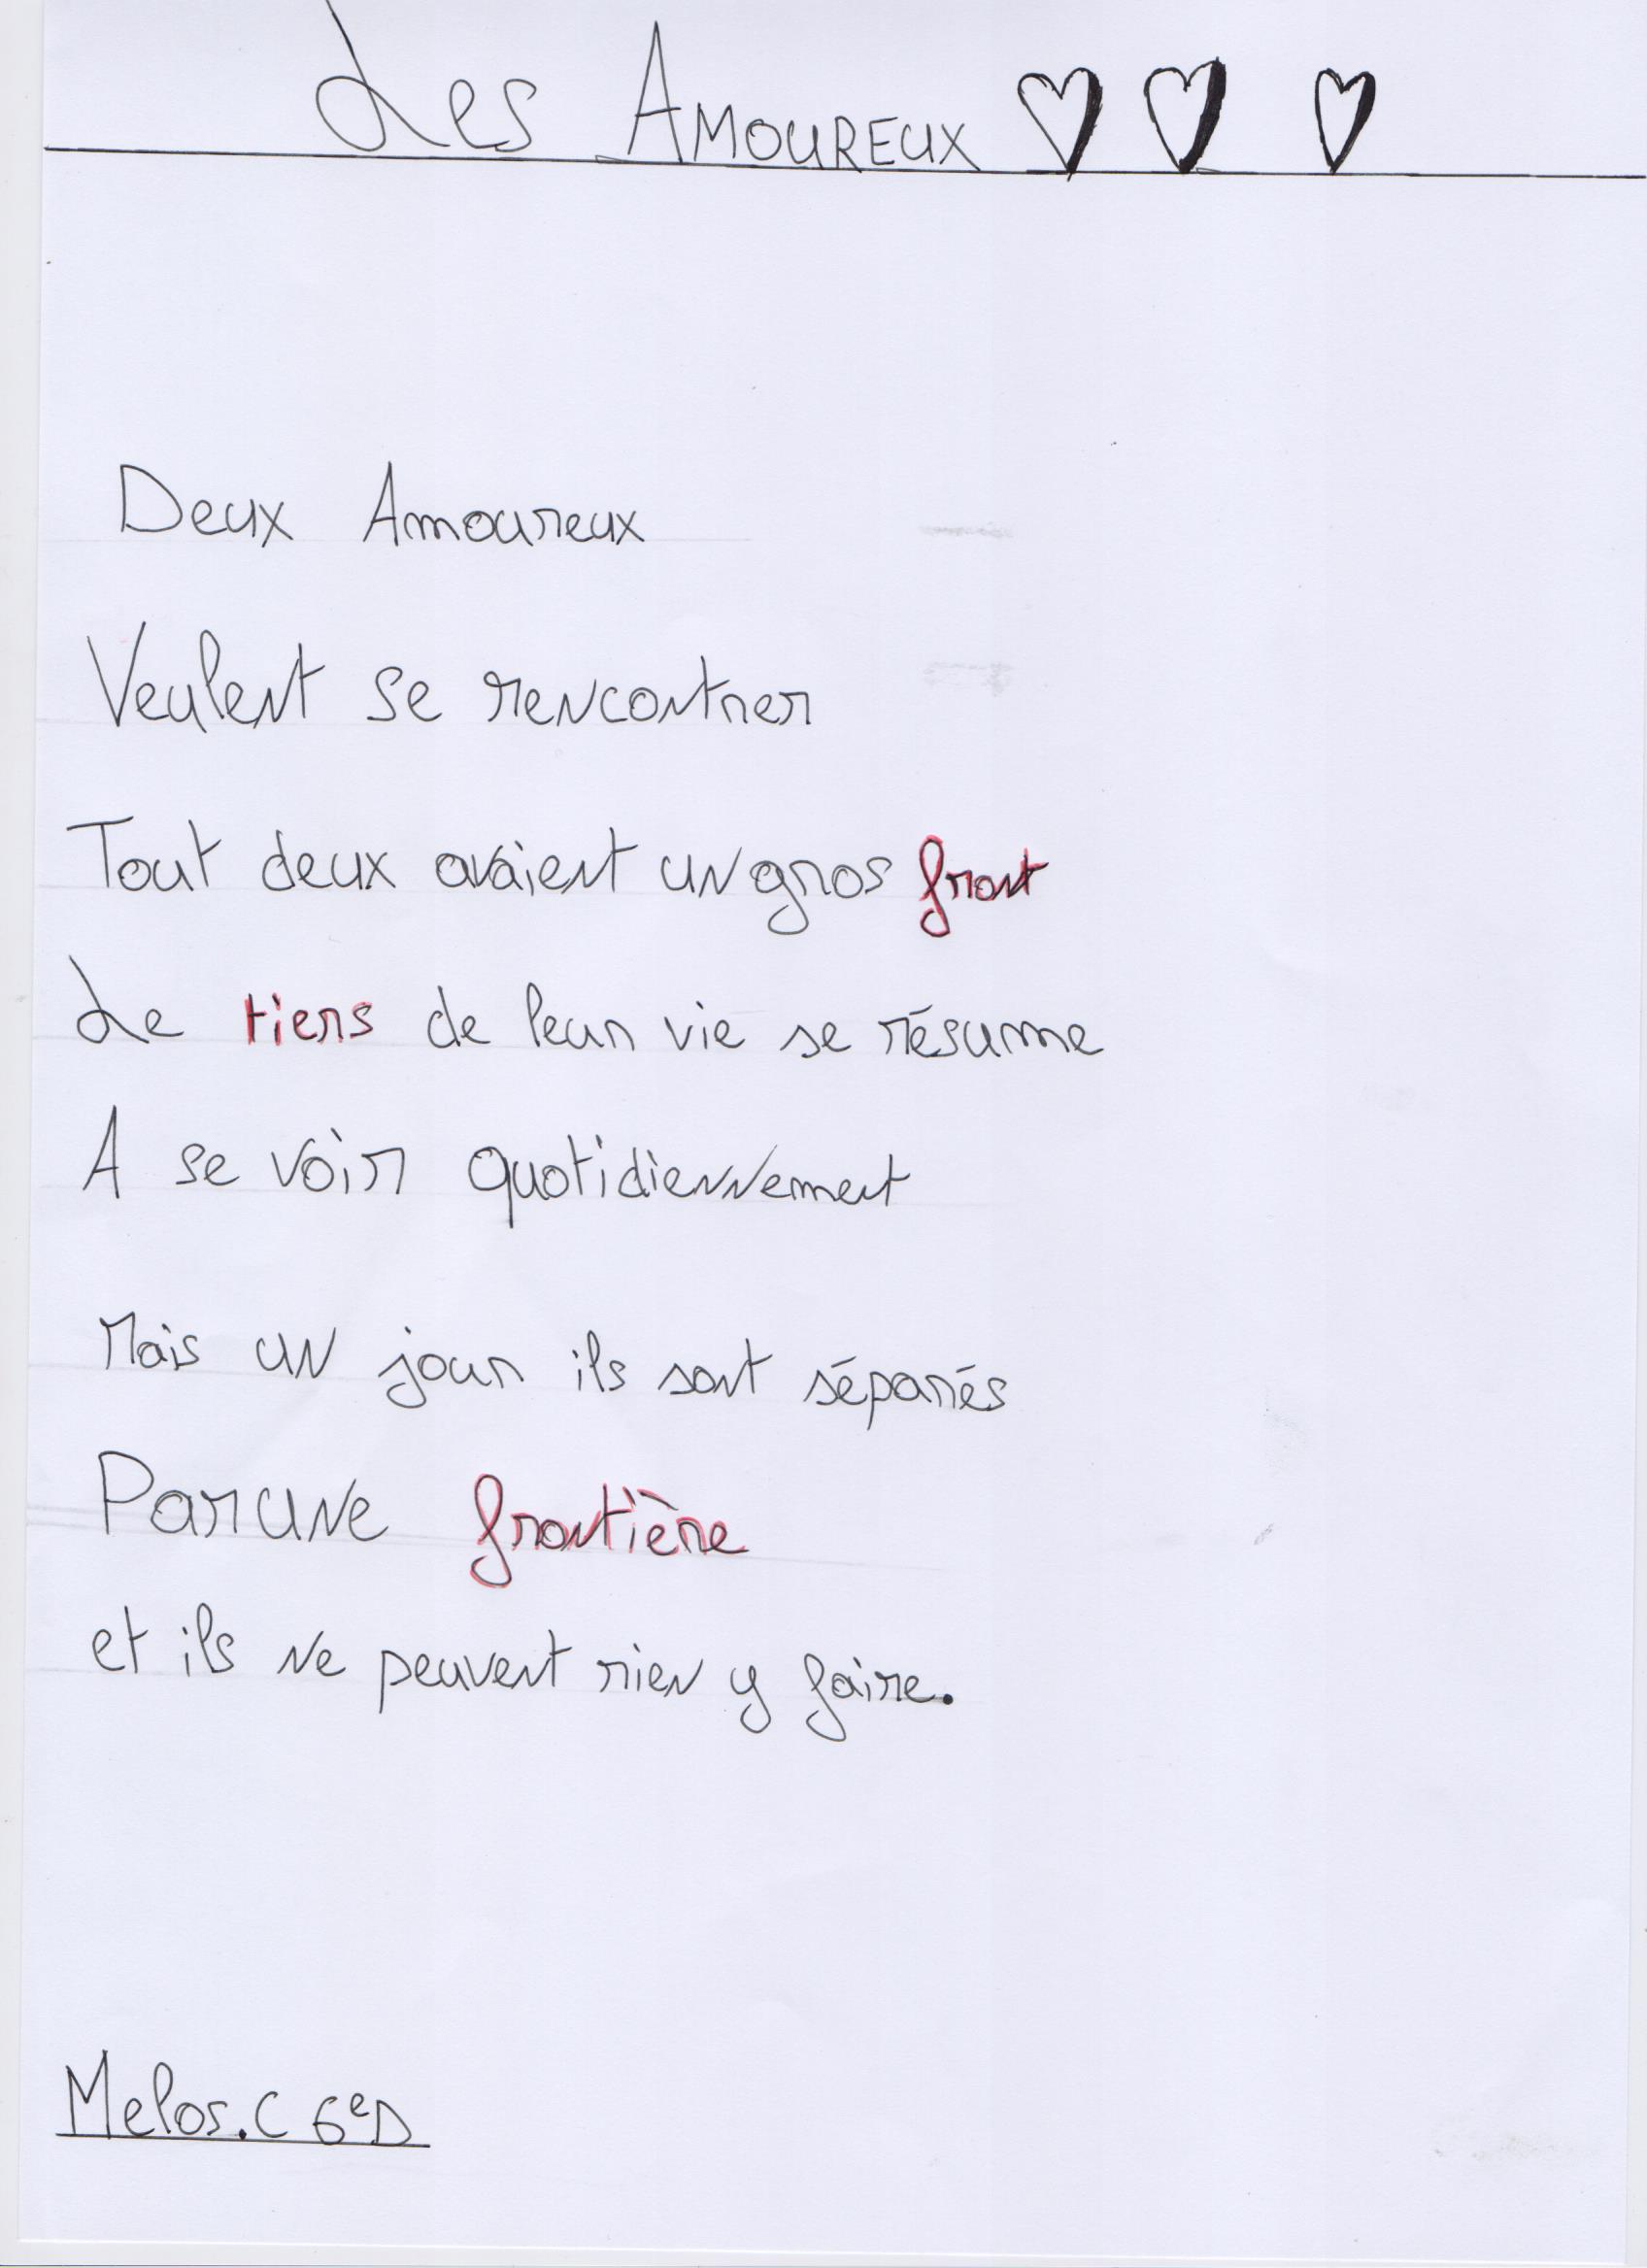 Les AMOUREUX
Deux Amoureux
Veulent se rencontrer
Tout deux avaient un gros front
Le tiers de leur vie se résume
A se voir quotidiennement
Mais un jour ils sont séparés
Par une frontière
et ils ne peuvent rien y faire.
Melos.C 6eD